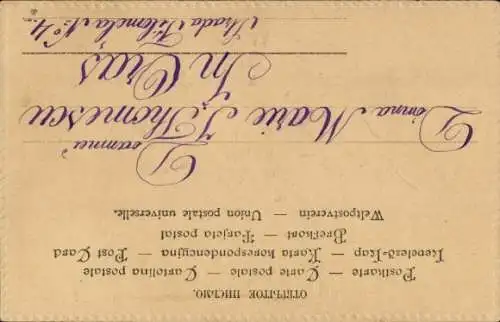 ОТКРЫТОЕ ПИСЬМО.
Postkarte — Carte postale — Cartolina postale
Levelező-Lap — Karta korespondencyjna — Post Card
Brefkort — Tarjeta postal
Weltpostverein — Union postale universelle.
Doamnei
Domna Marie J. Thomescu
In Oraş
Strada Filomela No 4.